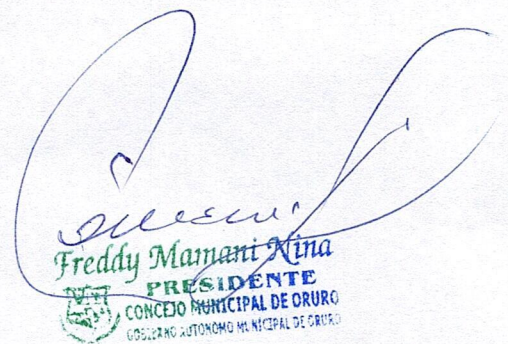 Freddy Mamani Nina
PRESIDENTE
CONCEJO MUNICIPAL DE ORURO
GOBIERNO AUTONOMO MUNICIPAL DE ORURO